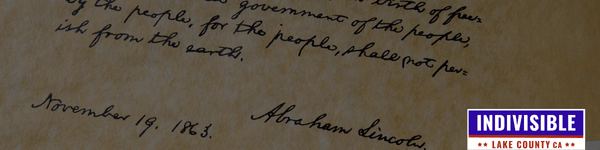 birth of free-
by the people, for the people, shall not per-
government of the people,
ish from the earth.
November 19, 1863.
Abraham Lincoln.
INDIVISIBLE
LAKE COUNTY CA